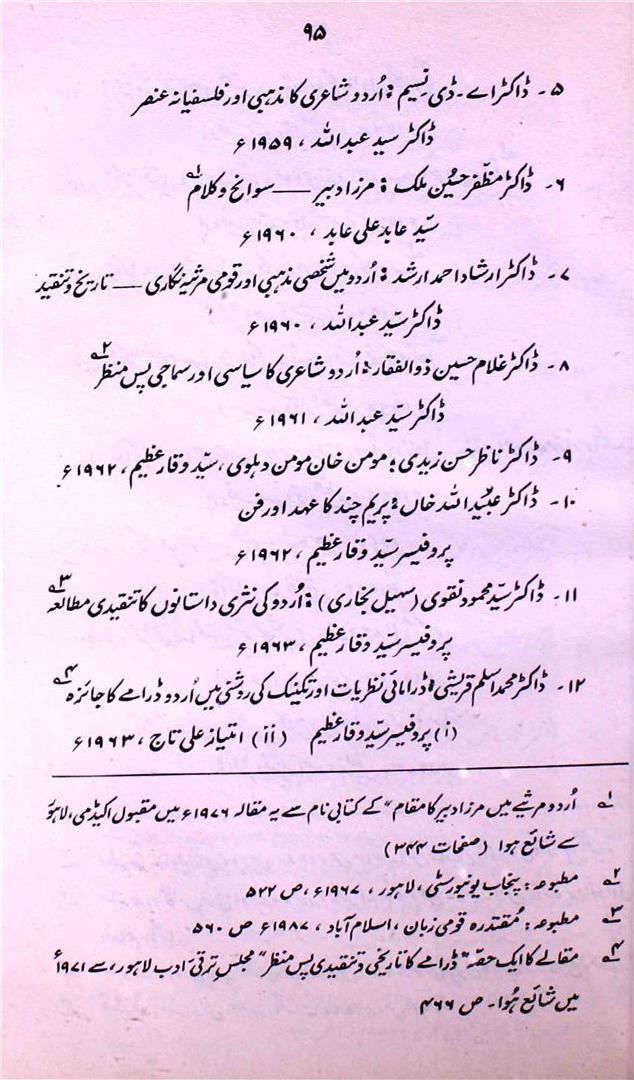 ۹۵
۵۔ ڈاکٹر اے۔ ڈی نسیم : اُردو شاعری کا مذہبی اور فلسفیانہ عنصر
ڈاکٹر سید عبد اللہ ، ۱۹۵۹ء
۶۔ ڈاکٹر مظفر حسین ملک : مرزا دبیر —— سوانح و کلام ۱؎
سیّد عابد علی عابد ، ۱۹۶۰ء
۷۔ ڈاکٹر ارشاد احمد ارشد : اُردو میں شخصی مذہبی اور قومی مرثیہ نگاری — تاریخ و تنقید
ڈاکٹر سیّد عبد اللہ ، ۱۹۶۰ء
۸۔ ڈاکٹر غلام حسین ذوالفقار : اُردو شاعری کا سیاسی اور سماجی پس منظر ۲؎
ڈاکٹر سیّد عبد اللہ ، ۱۹۶۱ء
۹۔ ڈاکٹر ناظر حسن زیدی : مومن خان مومن دہلوی ، سیّد وقار عظیم ، ۱۹۶۲ء
۱۰۔ ڈاکٹر عبیداللہ خاں : پریم چند کا عہد اور فن
پروفیسر سیّد وقار عظیم ، ۱۹۶۲ء
۱۱۔ ڈاکٹر سیّد محمود نقوی (سہیل بخاری) : اُردو کی نثری داستانوں کا تنقیدی مطالعہ ۳؎
پروفیسر سیّد وقار عظیم ، ۱۹۶۳ء
۱۲۔ ڈاکٹر محمد اسلم قریشی : ڈرامائی نظریات اور تکنیک کی روشنی میں اُردو ڈرامے کا جائزہ ۴؎
(i) پروفیسر سیّد وقار عظیم (ii) امتیاز علی تاج ، ۱۹۶۳ء
۱؎ اُردو مرثیے میں مرزا دبیر کا مقام" کے کتابی نام سے یہ مقالہ ۱۹۷۶ء میں مقبول اکیڈمی، لاہور
سے شائع ہوا (صفحات ۳۴۴)
۲؎ مطبوعہ : پنجاب یونیورسٹی ، لاہور ، ۱۹۶۷ء ، ص ۵۲۲
۳؎ مطبوعہ : مُقتدرہ قومی زبان ، اسلام آباد ، ۱۹۸۷ء ص ۵۶۰
۴؎ مقالے کا ایک حصّہ "ڈرامے کا تاریخی و تنقیدی پس منظر" مجلس ترقی ادب لاہور ، سے ۱۹۷۱ء
میں شائع ہُوا ۔ ص ۴۶۶